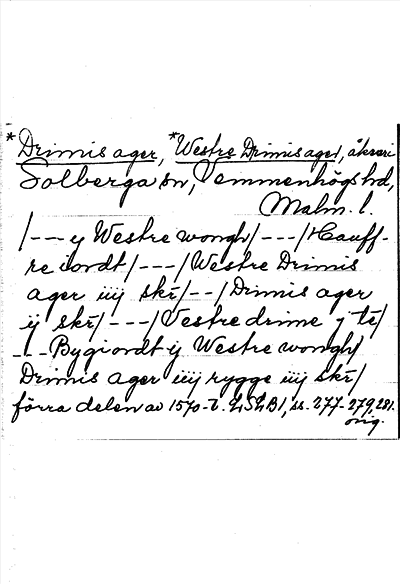 *Drimis ager, *Westre Drimis ager, åkrari
Solberga sn, Vemmenhögs hd,
Malm. l.
/--- ij Westre wongh/---/Hauff-
re iordt/---/Westre Drimis
ager iiij skr/--/Drimis ager
ij skr/---/Vestre drime j te/
--- Bygiordt ij Westre wongh/
Drimis ager iiij rygge iiij skr/
förra delen av 1570-t. LSLB1, ss. 277-279, 281.
orig.